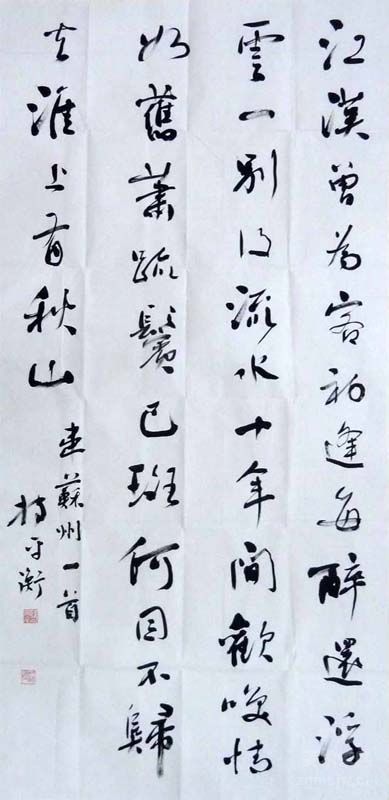 江漢曾為客初逢每醉還浮
雲一別後流水十年間歡咲情
如舊蕭疏鬢已斑何因不歸
去淮上有秋山
韋蘇州一首
持平衡